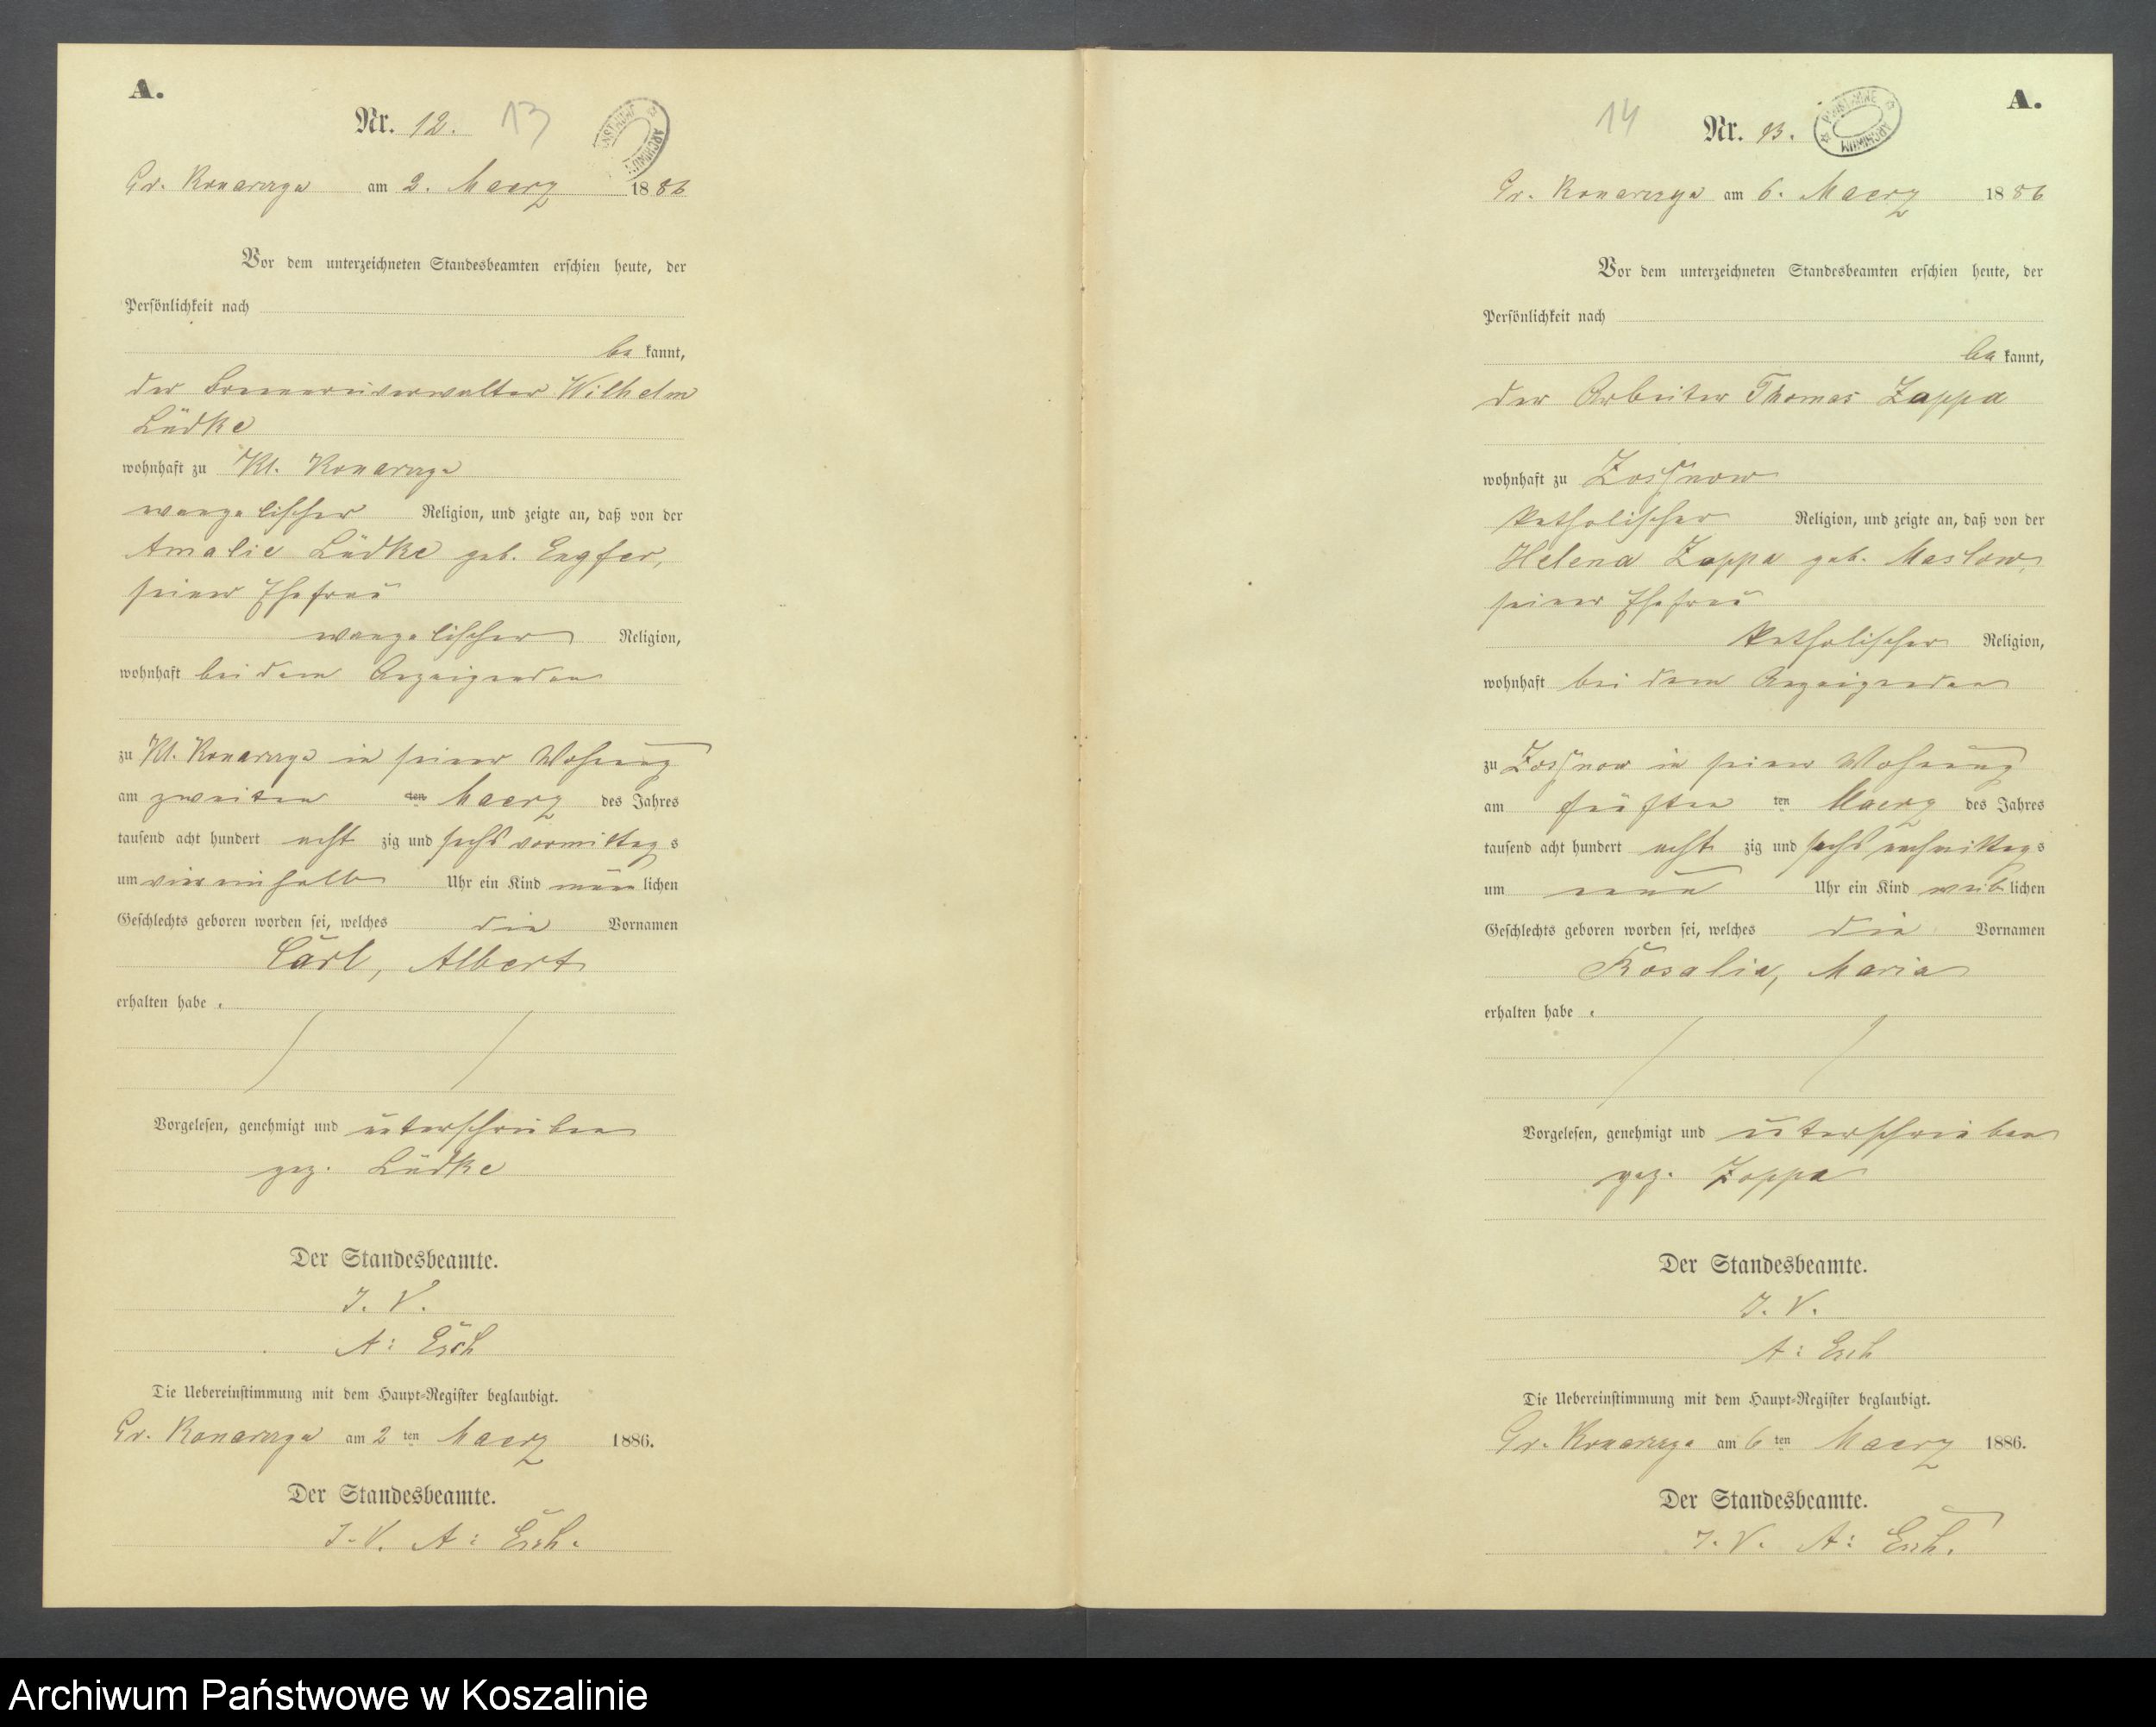 A.
Nr. 12.
13
Gr. Konarczyn am 2. Maerz 1886
Vor dem unterzeichneten Standesbeamten erschien heute, der
Persönlichkeit nach
be kannt,
der Brennereiverwalter Wilhelm
Lüdke
wohnhaft zu Kl. Konarczyn
evangelischer Religion, und zeigte an, daß von der
Amalie Lüdke geb. Engfer,
seiner Ehefrau
evangelischer Religion,
wohnhaft bei dem Anzeigenden
zu Kl. Konarczyn in seiner Wohnung
am zweiten ten Maerz des Jahres
tausend acht hundert acht zig und sechs vormittags
um vier einhalb Uhr ein Kind män lichen
Geschlechts geboren worden sei, welches die Vornamen
Carl, Albert
erhalten habe.
Vorgelesen, genehmigt und unterschrieben
gez. Lüdke
Der Standesbeamte.
J. V.
A: Esch
Die Uebereinstimmung mit dem Haupt-Register beglaubigt.
Gr. Konarczyn am 2 ten Maerz 1886.
Der Standesbeamte.
J. V. A: Esch.
A.
14
Nr. 13.
ARCHIWUM
Gr. Konarczyn am 6. Maerz 1886
Vor dem unterzeichneten Standesbeamten erschien heute, der
Persönlichkeit nach
be kannt,
der Arbeiter Thomas Zappa
wohnhaft zu Zossnow
katholischer Religion, und zeigte an, daß von der
Helena Zappa geb. Maslow,
seiner Ehefrau
katholischer Religion,
wohnhaft bei dem Anzeigenden
zu Zossnow in seiner Wohnung
am fünften ten Maerz des Jahres
tausend acht hundert acht zig und sechs nachmittags
um neun Uhr ein Kind weib lichen
Geschlechts geboren worden sei, welches die Vornamen
Rosalia, Maria
erhalten habe.
Vorgelesen, genehmigt und unterschrieben
gez. Zappa
Der Standesbeamte.
J. V.
A: Esch
Die Uebereinstimmung mit dem Haupt-Register beglaubigt.
Gr. Konarczyn am 6 ten Maerz 1886.
Der Standesbeamte.
J. V. A: Esch.
Archiwum Państwowe w Koszalinie